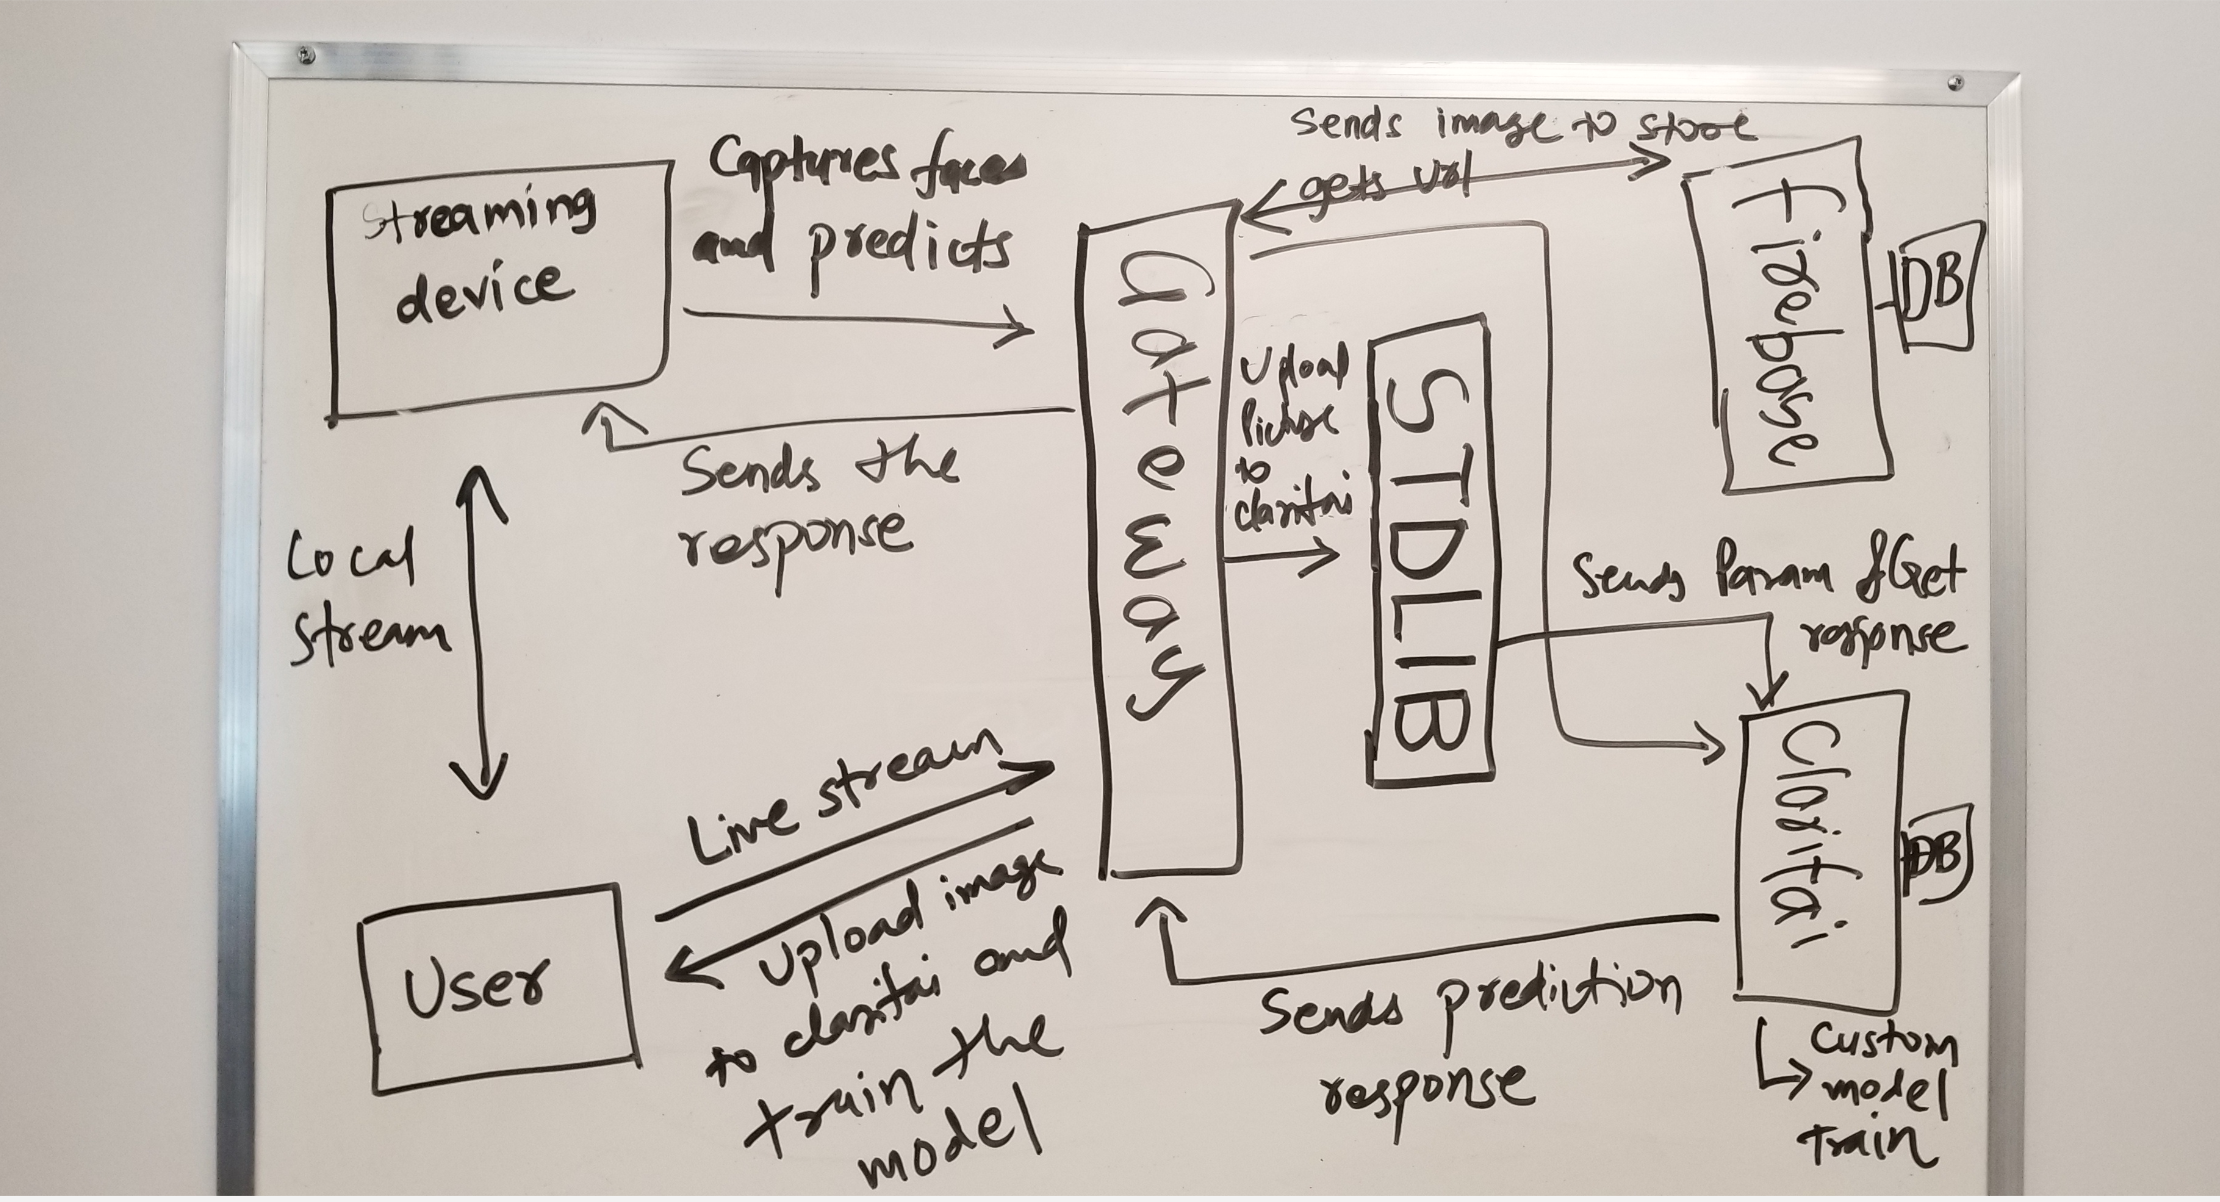 Streaming
device
Captures faces
and predicts
Sends the
response
Local
stream
User
Live stream
Upload image
to clarifai and
train the
model
Gateway
Sends image to store
gets url
Upload
Picture
to
clarifai
STDLIB
Firebase
DB
Sends Param & Get
response
Clarifai
DB
Sends prediction
response
Custom
model
train